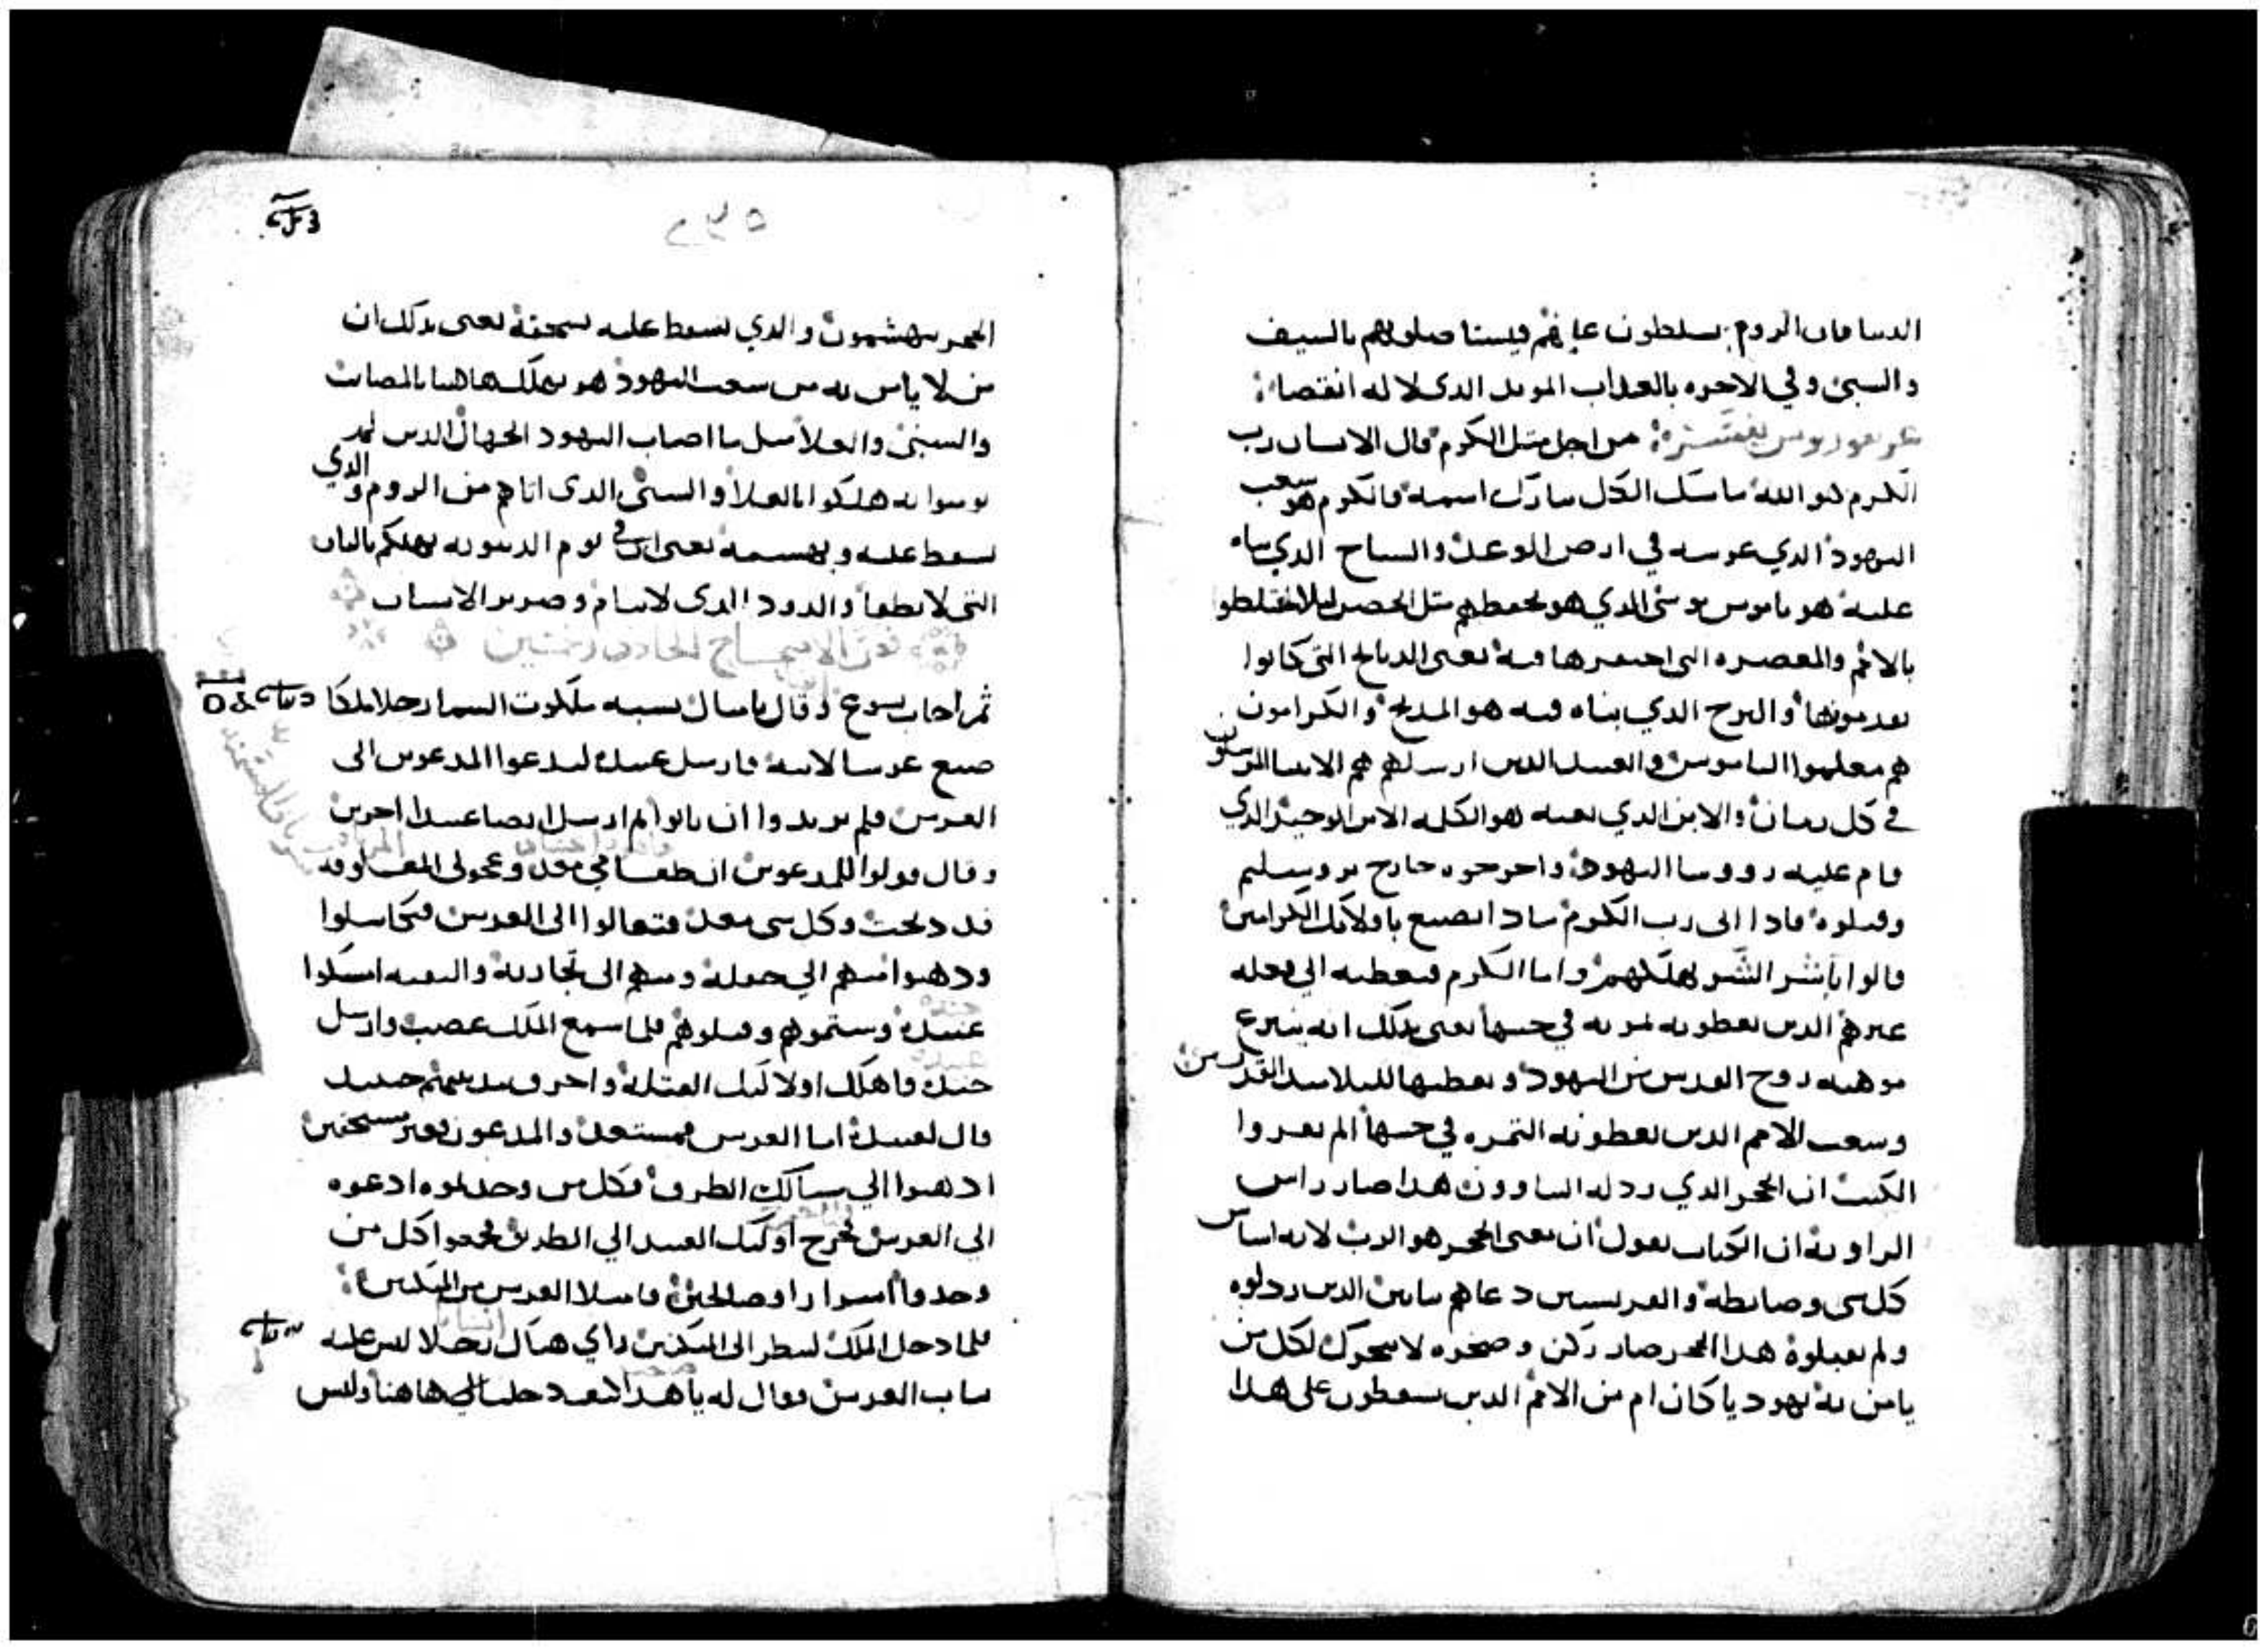 الدنيا فان الروم يسلطون عليهم فيستاصلوهم بالسيف
والسبي وفي الاخره بالعذاب الموبد الذي لا له انقضا
من اجل مثل الكروم قال الانسان رب
الكرم هو الله ماسك الكل تبارك اسمه فالكروم هو شعب
اليهود الذي غرسه في ارض الموعد والسياج الذي بناه
عليه هو ناموس موسى الذي هو يحفظهم مثل الحصن ليلا يختلطو
بالامم والمعصره التي احتفرها فيه يعني الدبايح التي كانوا
يقدمونها والبرج الذي بناه فيه هو المدبح والكرامون
هم معلموا الناموس والعبيد الدين ارسلهم هم الانبيا المرسلون
في كل زمان والابن الذي بعثه هو الكلمه الابن الوحيد الذي
قام عليه رووسا اليهود واخرجوه خارج يروسليم
وقتلوه فاذا اتى رب الكروم ماذا يصنع باولايك الكرامين
قالوا باشر الشر يهلكهم واما الكرم فيعطيه الي فعله
غيرهم الدين يعطونه ثمرته في حينها يعني بذلك انه ينزع
موهبه روح القدس من اليهود ويعطيها للتلاميد القديسين
وشعب الامم الدين يعطونه الثمره في حينها الم تقروا
الكتب ان الحجر الذي ردله البناوون هدا صار راس
الزاويه ان الكتاب يقول ان معنى الحجر هو الرب لانه اساس
كل شي وضابطه والفريسيين دعاهم بنايين الدين ردلوه
ولم يقبلوه هدا الحجر صار ركن وصخره لا تتحرك لكل من
يامن به يهوديا كان ام من الامم الدين يسقطون على هدا
٢٣٥
الحجر يتهشمون والذي يسقط عليه يسحقه يعني بذلك ان
من لا يامن به من شعب اليهود هو يهلك هاهنا بالمصايب
والسبي والغلا مثل ما اصاب اليهود الجهال الدين لم
يومنوا به هلكوا بالغلا والسبي الذي اتاهم من الروم والذي
يسقط عليه ويهشمه يعني ان في يوم الدينونه يهلكهم بالنار
التي لا تطفا والدود الذي لا ينام وصرير الاسنان
ثم اجاب يسوع وقال بامثال تشبه ملكوت السما رجلا ملكا
صنع عرسا لابنه فارسل عبيده ليدعوا المدعوين الى
العرس فلم يريدوا ان ياتوا ثم ارسل ايضا عبيدا اخرين
وقال قولوا للمدعوين ان طعامي معد وعجولي المعلوفه
قد دبحت وكل شي معد فتعالوا الى العرس فتكاسلوا
ودهبوا منهم الي حقله ومنهم الى تجارته والبقيه امسكوا
عبيده وشتموهم وقتلوهم فلما سمع الملك غضب وارسل
جنده فاهلك اولايك القتله واحرق مدينتهم حينيد
قال لعبيده اما العرس فمستعد والمدعوون فغير مستحقين
ادهبوا الي مسالك الطرق فكل من وجدتموه ادعوه
الى العرس فخرج اوليك العبيد الي الطرق فجمعوا كل من
وجدوا اشرارا وصالحين فامتلا العرس من المتكيين
فلما دخل الملك لينظر الى المتكيين راي هناك رجلا ليس عليه
تياب العرس فقال له يا هدا كيف دخلت الي هاهنا وليس